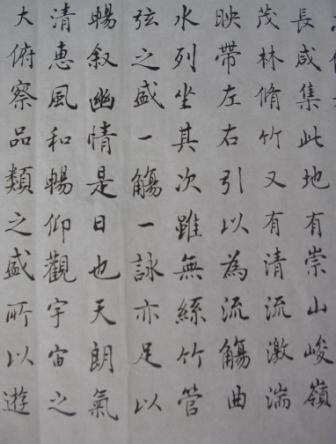 長咸集此地有崇山峻嶺
茂林脩竹又有清流激湍
映帶左右引以為流觴曲
水列坐其次雖無絲竹管
弦之盛一觴一詠亦足以
暢叙幽情是日也天朗氣
清惠風和暢仰觀宇宙之
大俯察品類之盛所以遊